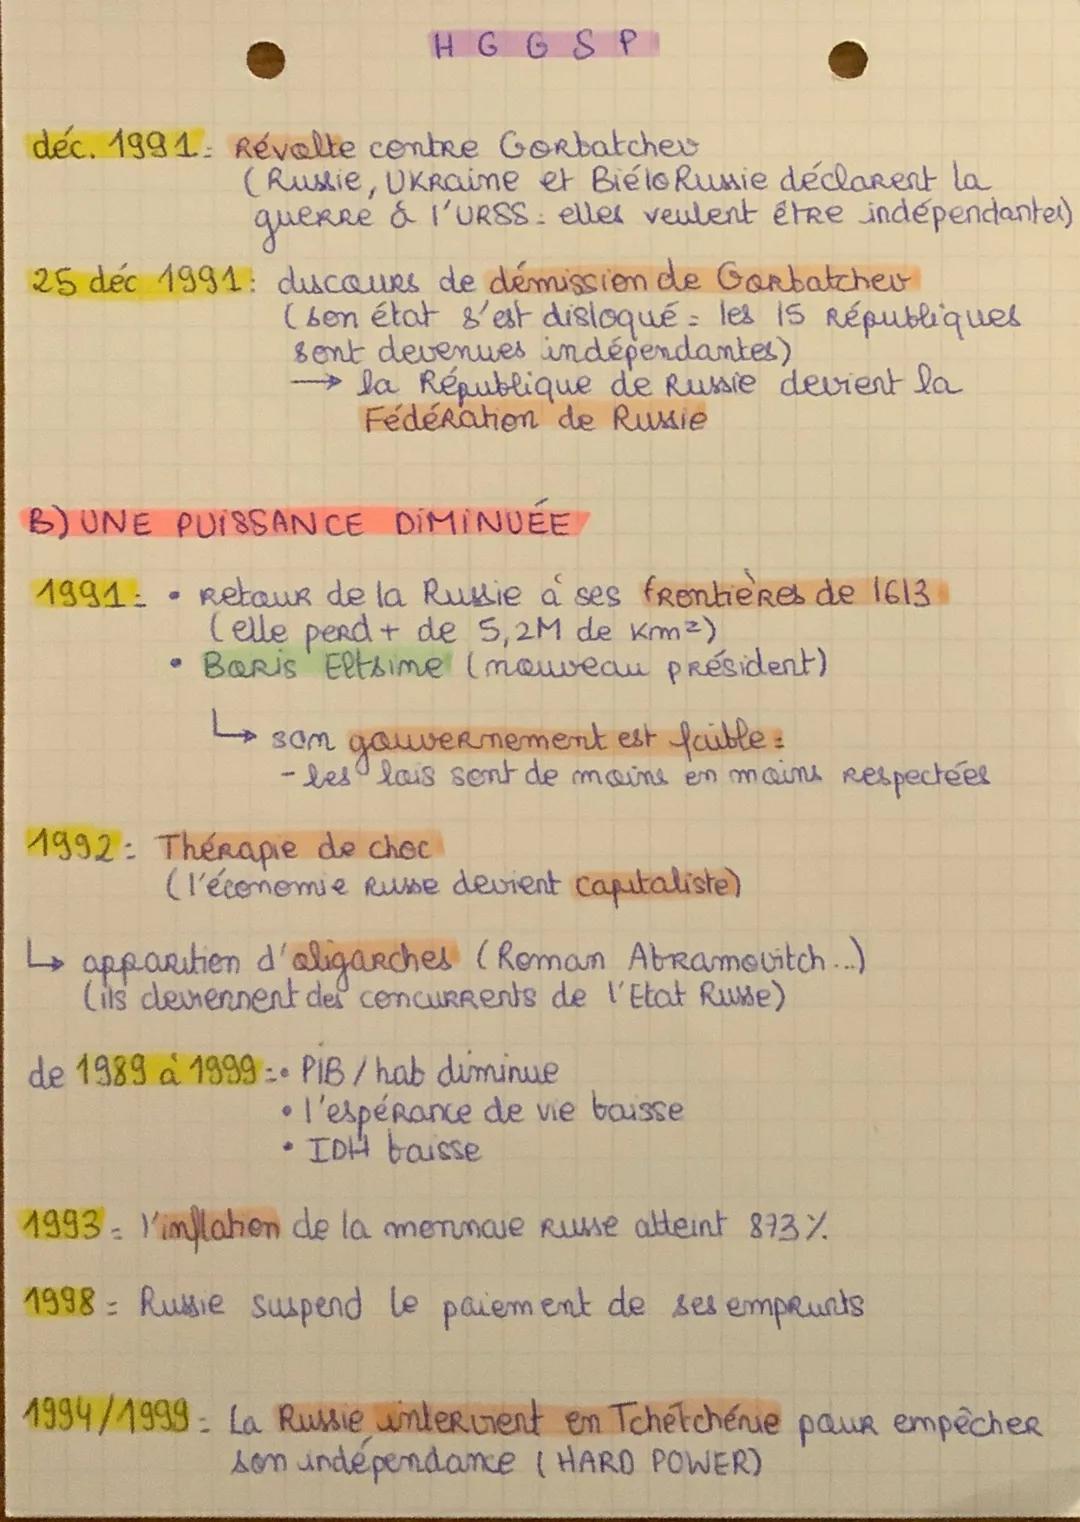 H G G S P
déc. 1991: Révolte contre Gorbatchev
(Russie, Ukraine et BiéloRussie déclarent la
guerre à l'URSS: elles veulent être indépendantes)
25 déc 1991: discours de démission de Gorbatchev
(son état s'est disloqué: les 15 Républiques
sont devenues indépendantes)
→ la République de Russie devient la
Fédération de Russie
B) UNE PUISSANCE DIMINUÉE
1991: • retour de la Russie à ses frontières de 1613
(elle perd + de 5,2M de km²)
• Boris Eltsine (nouveau président)
↳ son gouvernement est faible:
- les lois sont de moins en moins respectées
1992: Thérapie de choc
(l'économie russe devient capitaliste)
↳ apparition d'oligarches (Roman Abramovitch...)
(ils deviennent des concurrents de l'Etat Russe)
de 1989 à 1999: • PIB / hab diminue
• l'espérance de vie baisse
• IDH baisse
1993: l'inflation de la monnaie russe atteint 873 %
1998: Russie suspend le paiement de ses emprunts
1994/1999: La Russie intervient en Tchétchénie pour empêcher
son indépendance (HARD POWER)